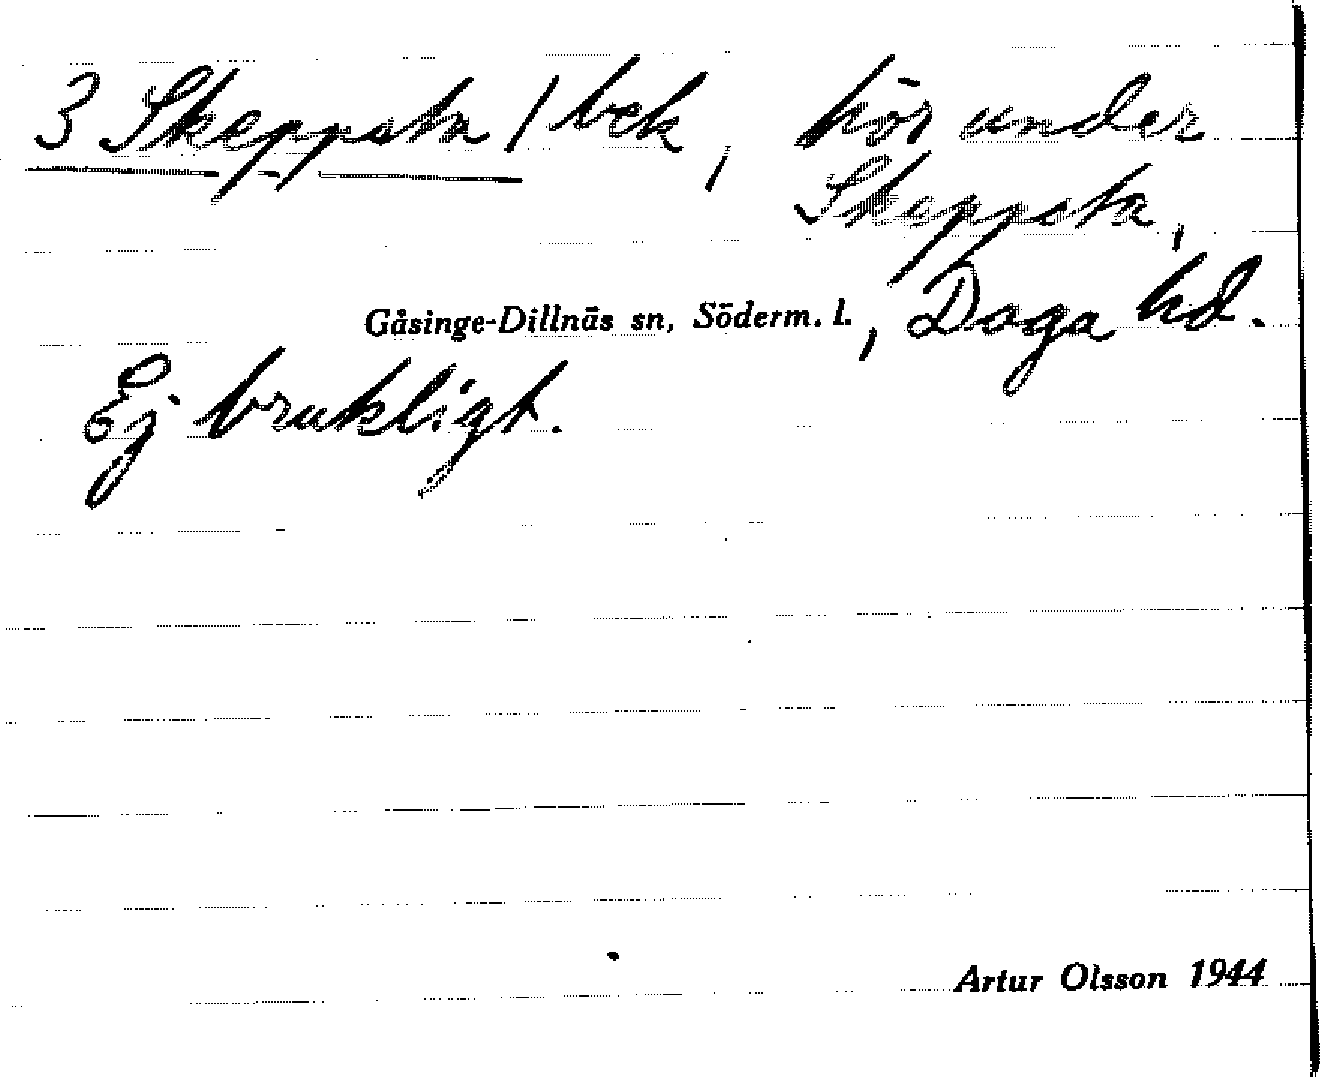 3 Skeppsta / bek, hör under
Skeppsta,
Gåsinge-Dillnäs sn, Söderm. l., Daga hd.
Ej brukligt.
Artur Olsson 1944